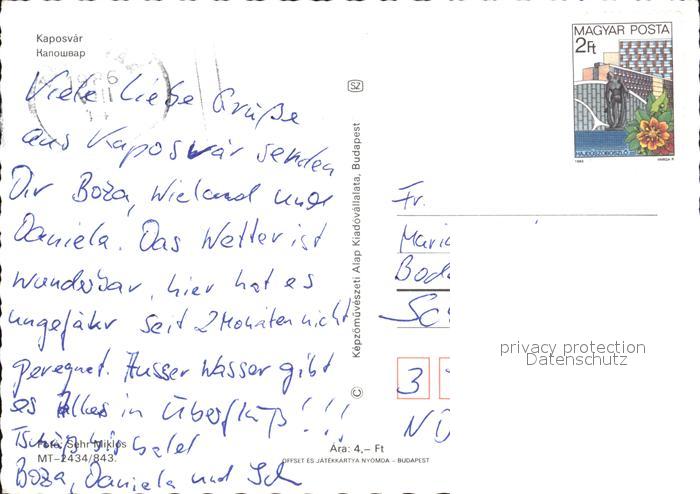 Kaposvár
Капошвар
MAGYAR POSTA
2Ft
HAJDÚSZOBOSZLÓ
1983
VARGA P.
Viele Liebe Grüße
aus Kaposvár senden
Dir Boza, Wieland und
Daniela. Das Wetter ist
wunderbar, hier hat es
ungefähr seit 2 Monaten nicht
geregnet. Ausser Wasser gibt
es Alles in Überfluß!!!
Tschüß bis bald
Boza, Daniela und
SZ
Képzőművészeti Alap Kiadóvállalata, Budapest
©
Fr.
3
privacy protection
Datenschutz
Fotó: Sehr Miklós
MT-2434/843.
Ára: 4,– Ft
OFFSET ÉS JÁTÉKKÁRTYA NYOMDA – BUDAPEST